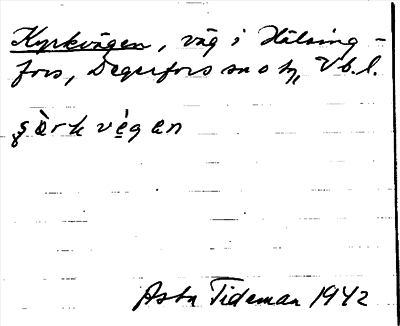 Kyrkvägen, väg i Hälsing-
fors, Degerfors sn o h, Vb.l.
şòrkvègan
Asta Tideman 1942